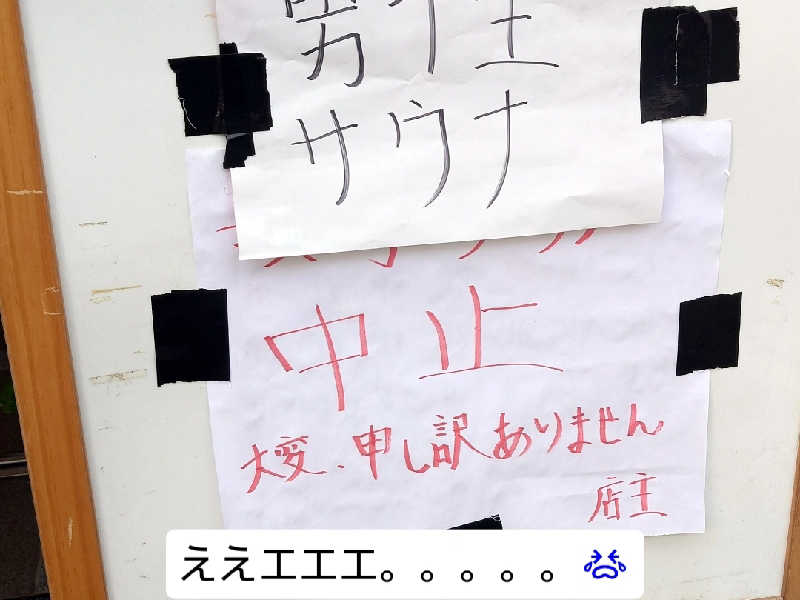 男性
サウナ
中止
大変、申し訳ありません
店主
ええエエエ。。。。。😭